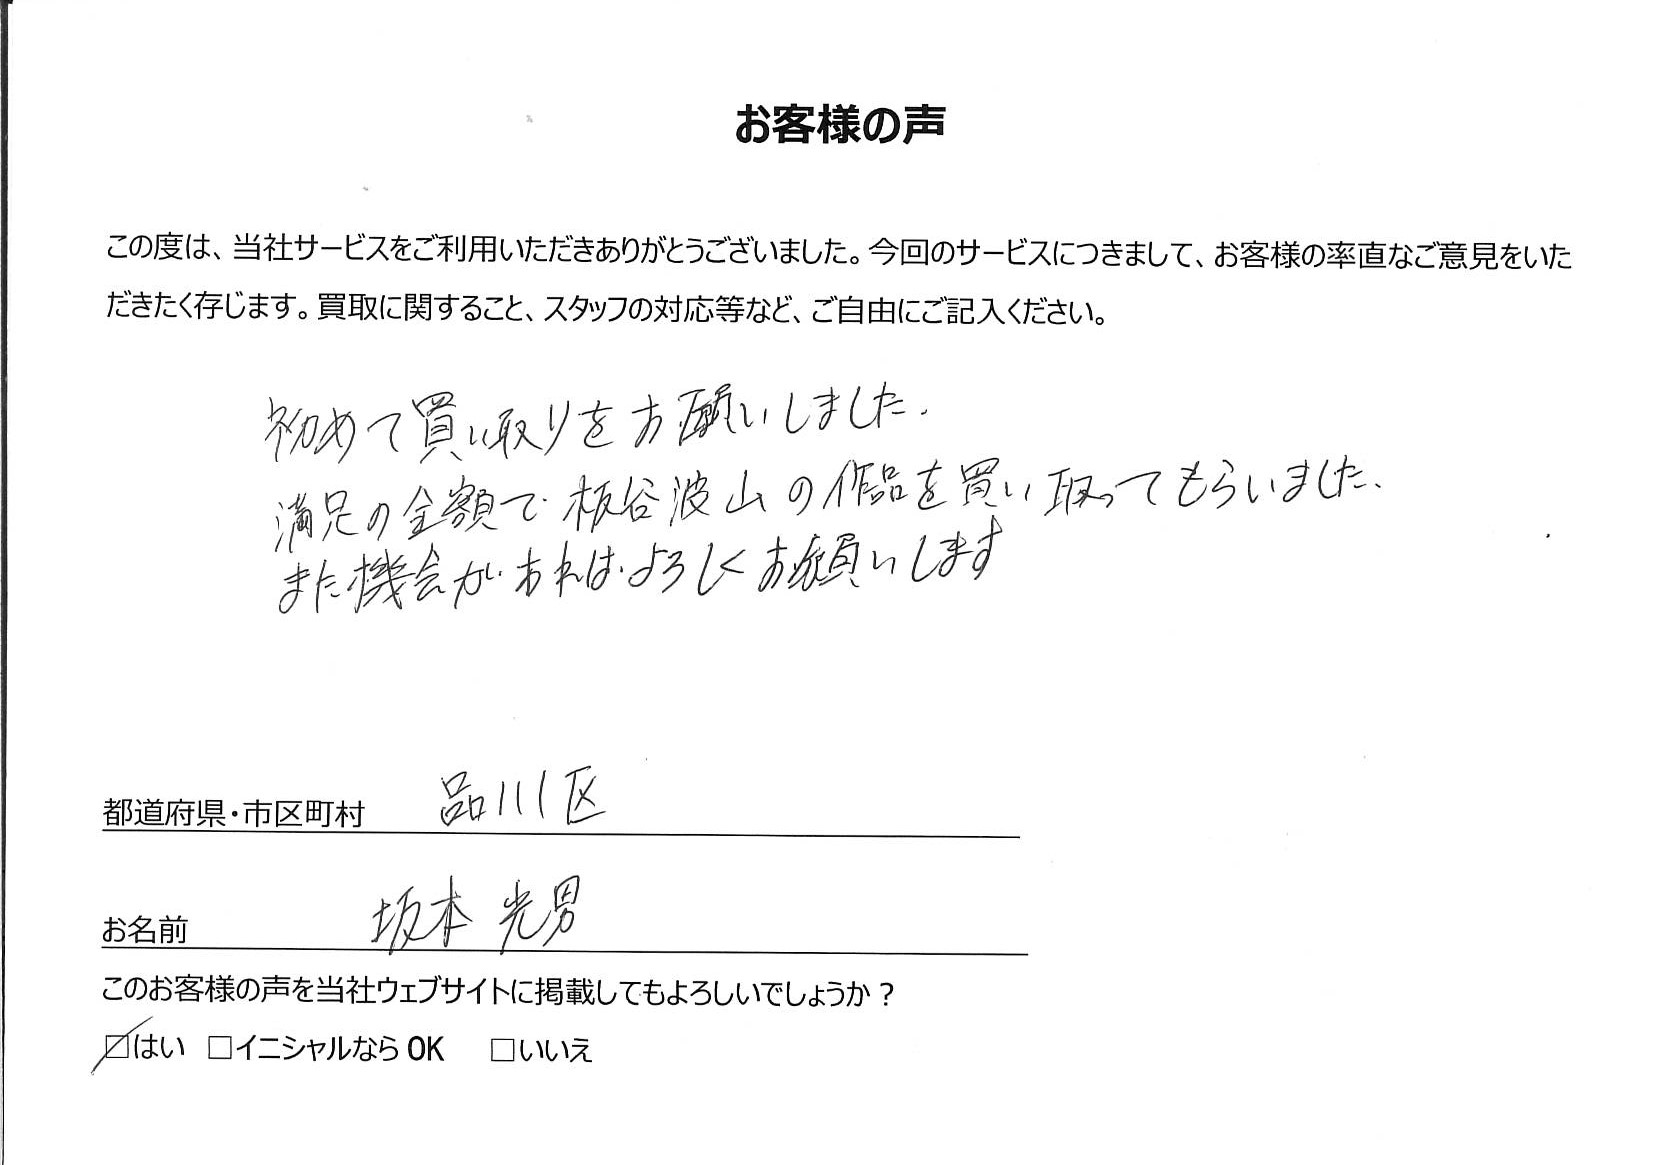 お客様の声
この度は、当社サービスをご利用いただきありがとうございました。今回のサービスにつきまして、お客様の率直なご意見をいた
だきたく存じます。買取に関すること、スタッフの対応等など、ご自由にご記入ください。
初めて買い取りをお願いしました.
満足の金額で板谷波山の作品を買い取ってもらいました、
また機会があればよろしくお願いします
都道府県・市区町村 品川区
お名前 坂本 光男
このお客様の声を当社ウェブサイトに掲載してもよろしいでしょうか？
☑はい □イニシャルなら OK □いいえ